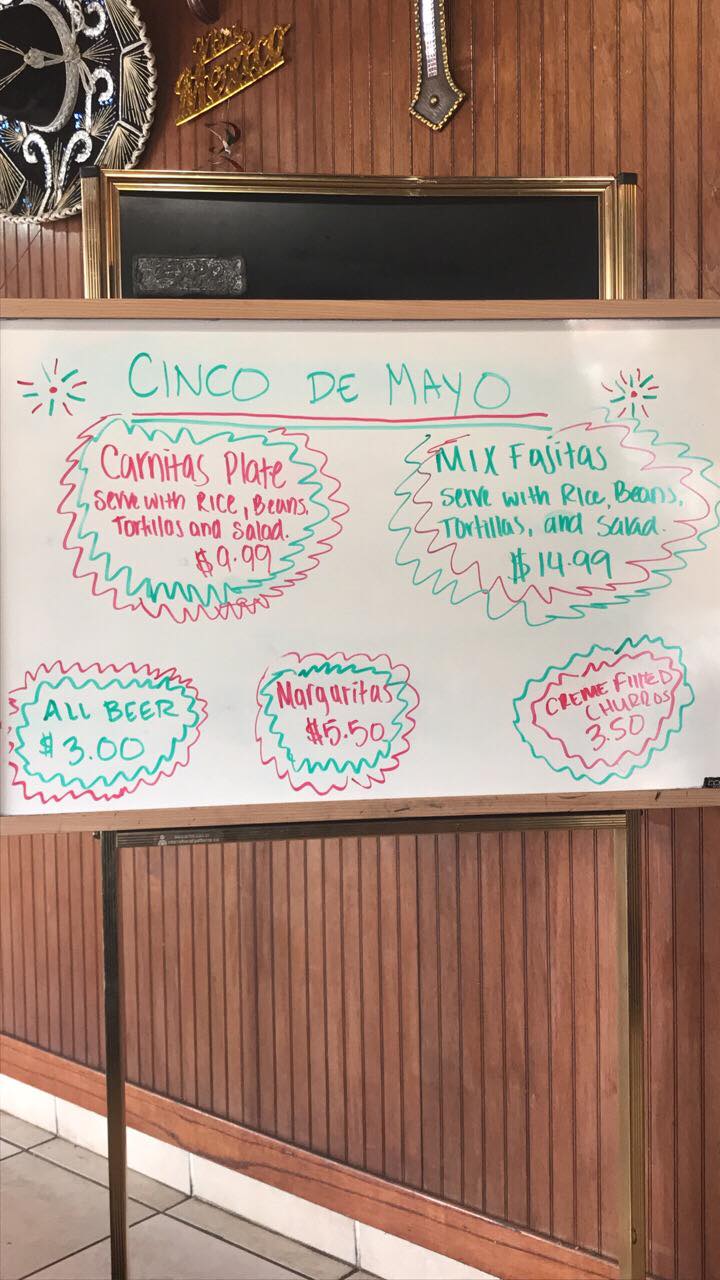 Viva
Mexico
CINCO DE MAYO
Carnitas Plate
Serve with Rice, Beans,
Tortillas and Salad.
$9.99
MIX Fajitas
Serve with Rice, Beans,
Tortillas, and Salad.
$14.99
ALL BEER
$3.00
Margaritas
$5.50
CREME FILLED
CHURROS
3.50